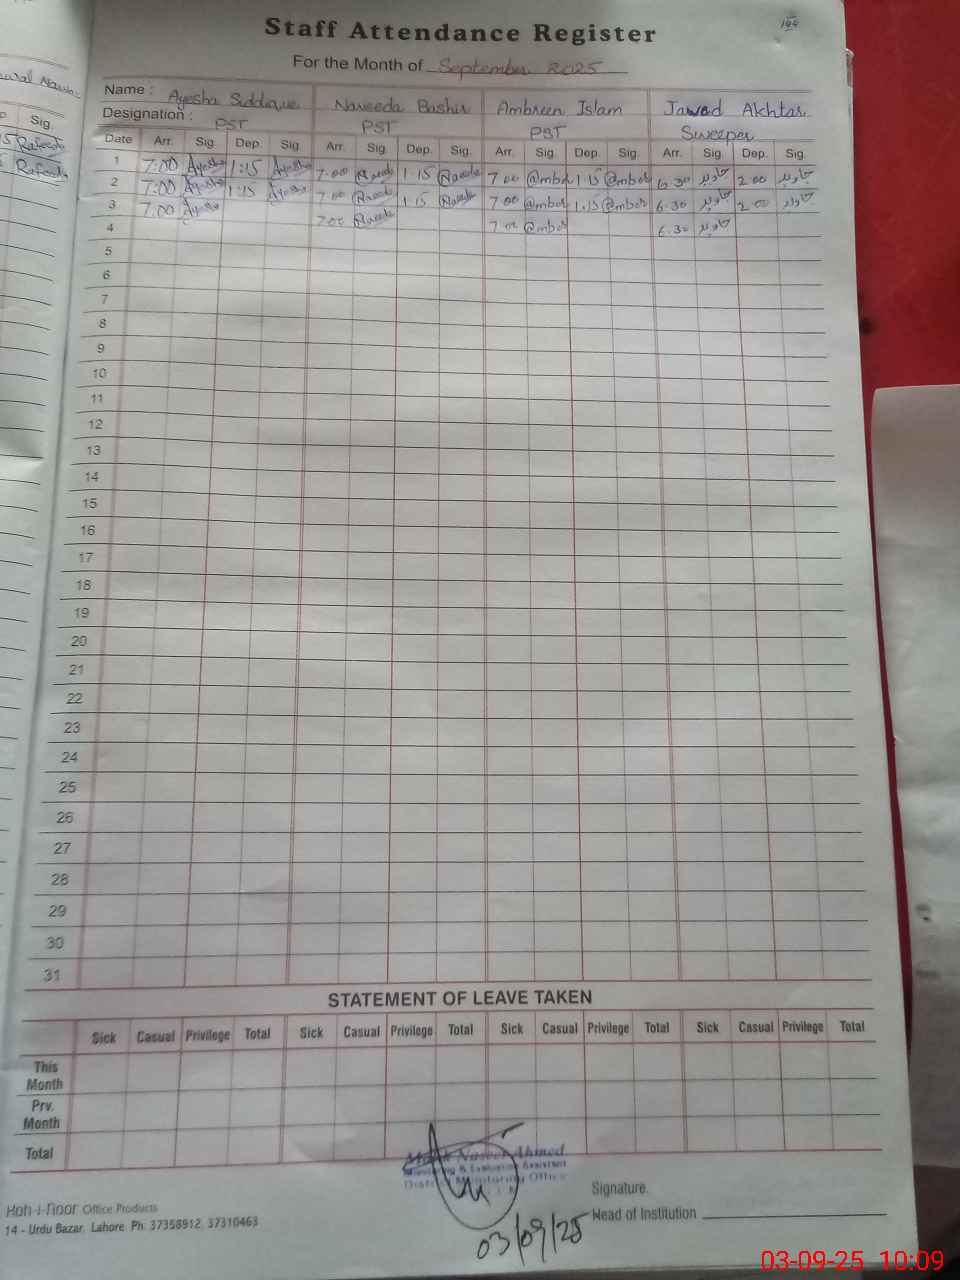 199
Staff Attendance Register
For the Month of September 2025
Name : Ayesha Siddique Naveeda Bashir Ambreen Islam Jawad Akhtar
Designation : PST PST PST Sweeper
Date Arr. Sig. Dep. Sig. Arr. Sig. Dep. Sig. Arr. Sig. Dep. Sig. Arr. Sig. Dep. Sig.
1 7:00 Ayesha 1:15 Ayesha 7:00 1:15 7 00 @mber 1 15 @mber 6.30 جاوید 2.00 جاوید
2 7:00 Ayesha 1:15 Ayesha 7:00 1:15 7 00 @mber 1.15 @mber 6.30 جاوید 2.00 جاوید
3 7:00 Ayesha 7:00 7.00 @mber 6.30 جاوید
4
5
6
7
8
9
10
11
12
13
14
15
16
17
18
19
20
21
22
23
24
25
26
27
28
29
30
31
STATEMENT OF LEAVE TAKEN
Sick Casual Privilege Total Sick Casual Privilege Total Sick Casual Privilege Total Sick Casual Privilege Total
This Month
Prv. Month
Total
Naseer Ahmed
Monitoring & Evaluation Assistant
District Monitoring Office
03/09/25
Signature.
Head of Institution
Koh-i-noor Office Products
14 - Urdu Bazar, Lahore. Ph: 37358912, 37310463
Sig.
Rafeeda
Rafeeda
03-09-25 10:09